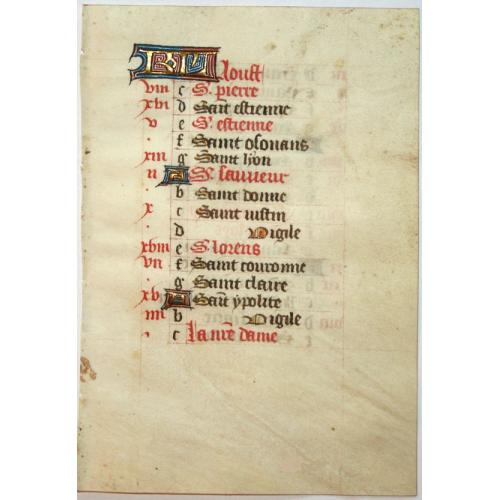 KL Aoust
viii c S. pierre
xvi d Saīt estienne
v e S. estienne
f Saint osouans
xiii g Saint lyon
ii A S. sauueur
b Saint donne
x c Saint iustin
d Vigile
xviii e S. lorens
vii f Saint couronne
g Saint claire
xv A Saīt ypolite
iiii b Vigile
c La nr̄e dame